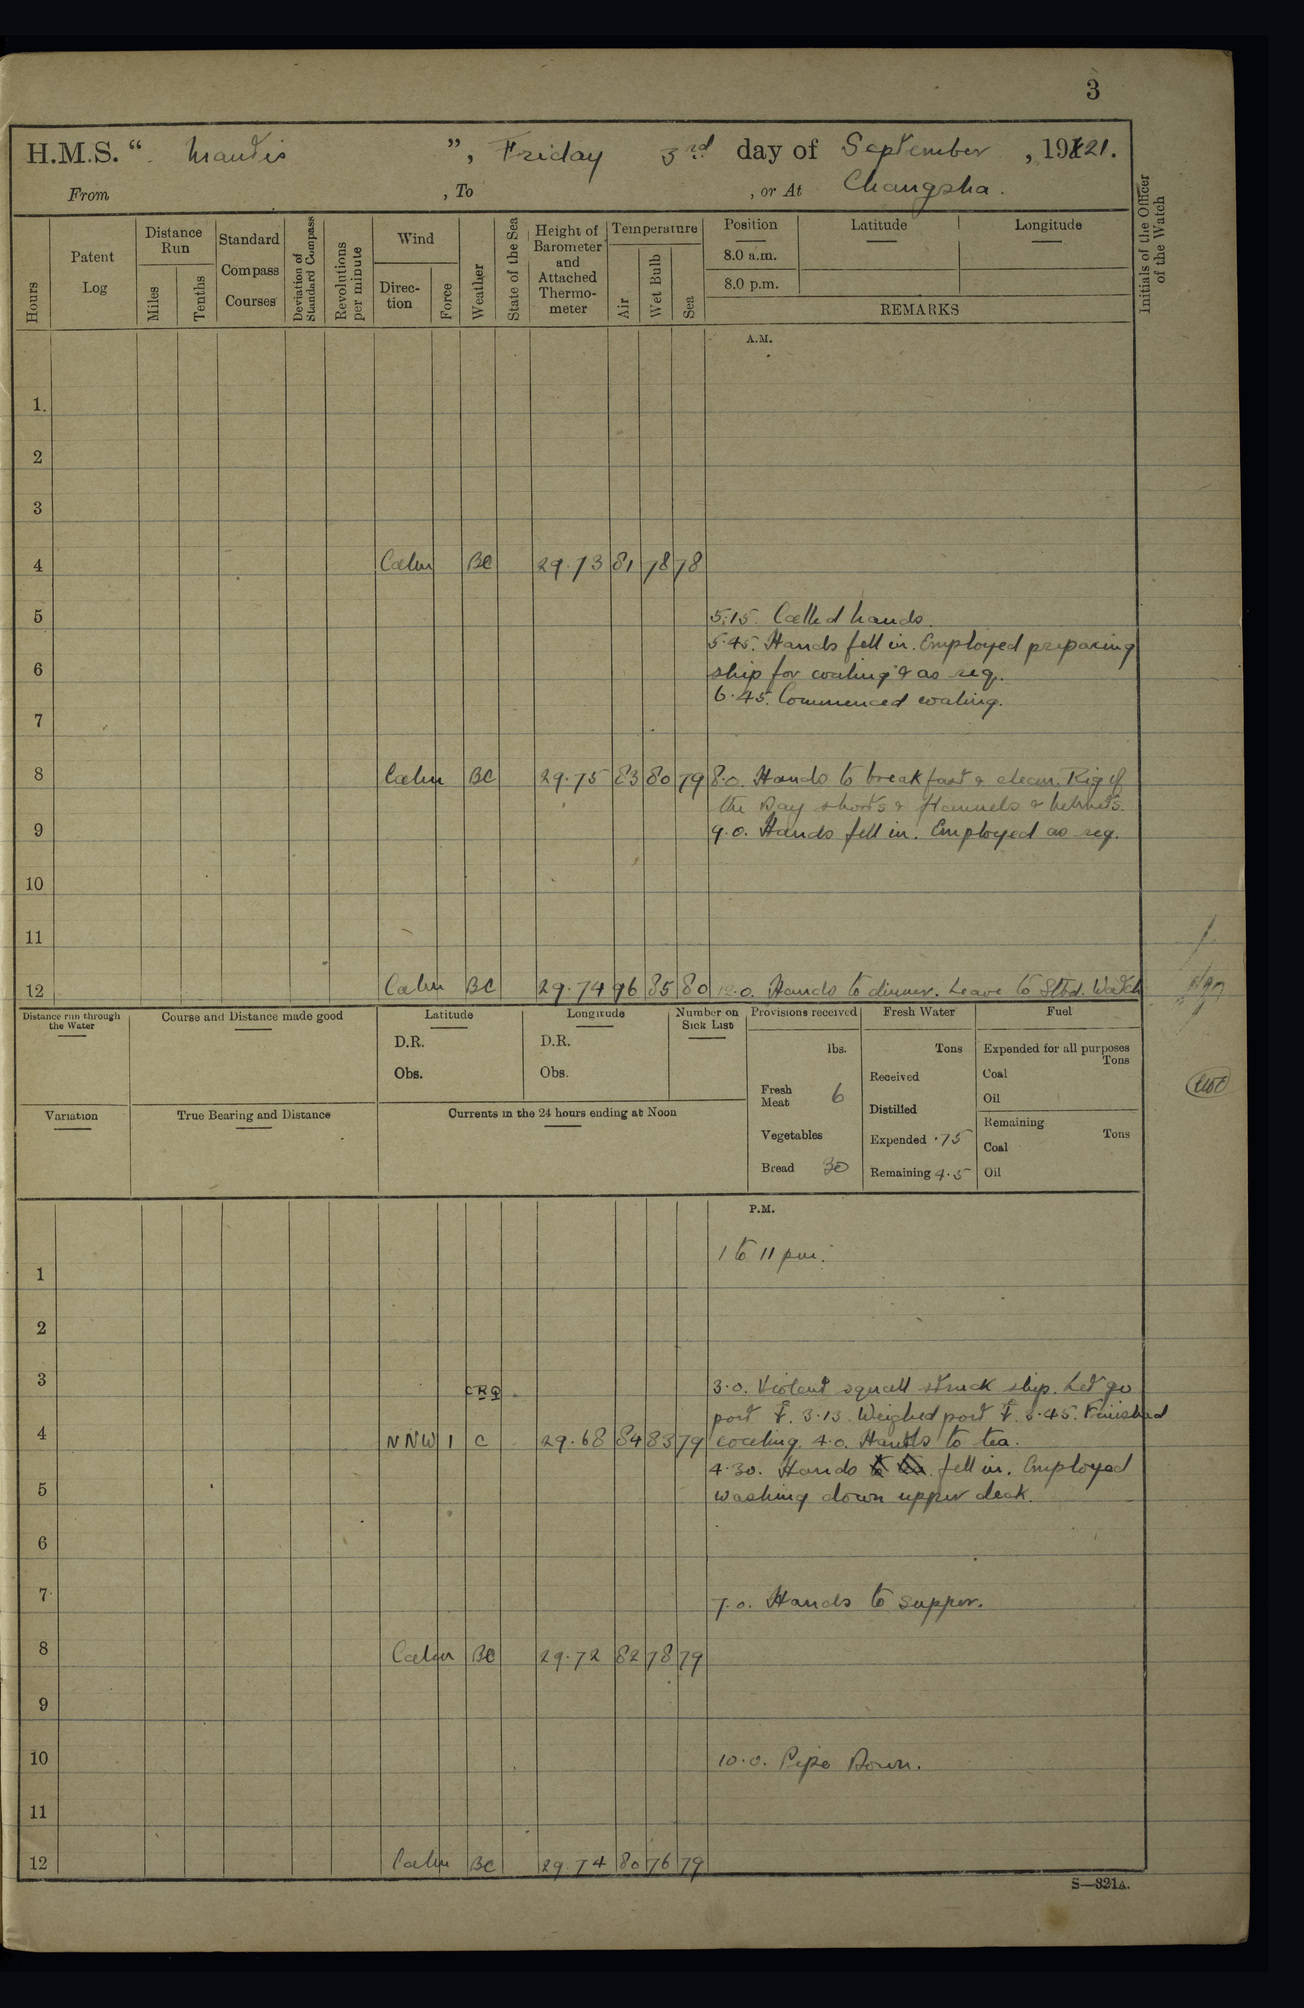 3
H.M.S. “ Mantis ”, Friday 3rd day of September , 1921.
From , To , or At Changsha.
Hours
Patent Log
Distance Run
Miles
Tenths
Standard Compass Courses
Deviation of Standard Compass
Revolutions per minute
Wind
Direction
Force
Weather
State of the Sea
Height of Barometer and Attached Thermometer
Temperature
Air
Wet Bulb
Sea
Position Latitude Longitude
8.0 a.m.
8.0 p.m.
REMARKS
Initials of the Officer of the Watch
A.M.
1.
2
3
4 Calm BC 29.73 81 78 78
5 5.15. Called hands.
5.45. Hands fell in. Employed preparing
6 ship for coaling & as req.
6.45. Commenced coaling.
7
8 Calm BC 29.75 83 80 79 8.0. Hands to breakfast & clean. Rig of
the Day shorts & flannels & helmets.
9 9.0. Hands fell in. Employed as req.
10
11
12 Calm BC 29.74 96 85 80 12.0. Hands to dinner. Leave to Stbd. Watch
Distance run through the Water
Course and Distance made good
Latitude
D.R.
Obs.
Longitude
D.R.
Obs.
Number on Sick List
Provisions received
lbs.
Fresh Meat 6
Vegetables
Bread 30
Fresh Water
Tons
Received
Distilled
Expended .75
Remaining 4.5
Fuel
Expended for all purposes
Tons
Coal
Oil
Remaining
Tons
Coal
Oil
Variation
True Bearing and Distance
Currents in the 24 hours ending at Noon
P.M.
1 to 11 pm.
1
2
3 CRQ 3.0. Violent squall struck ship. Let go
port ⚓. 3.13. Weighed port ⚓. 3.45. Finished
4 NNW 1 C 29.68 84 83 79 coaling. 4.0. Hands to tea.
4.30. Hands fell in. Employed
5 washing down upper deck.
6
7 7.0. Hands to supper.
8 Calm BC 29.72 82 78 79
9
10 10.0. Pipe Down.
11
12 Calm BC 29.74 80 76 79
S—321A.